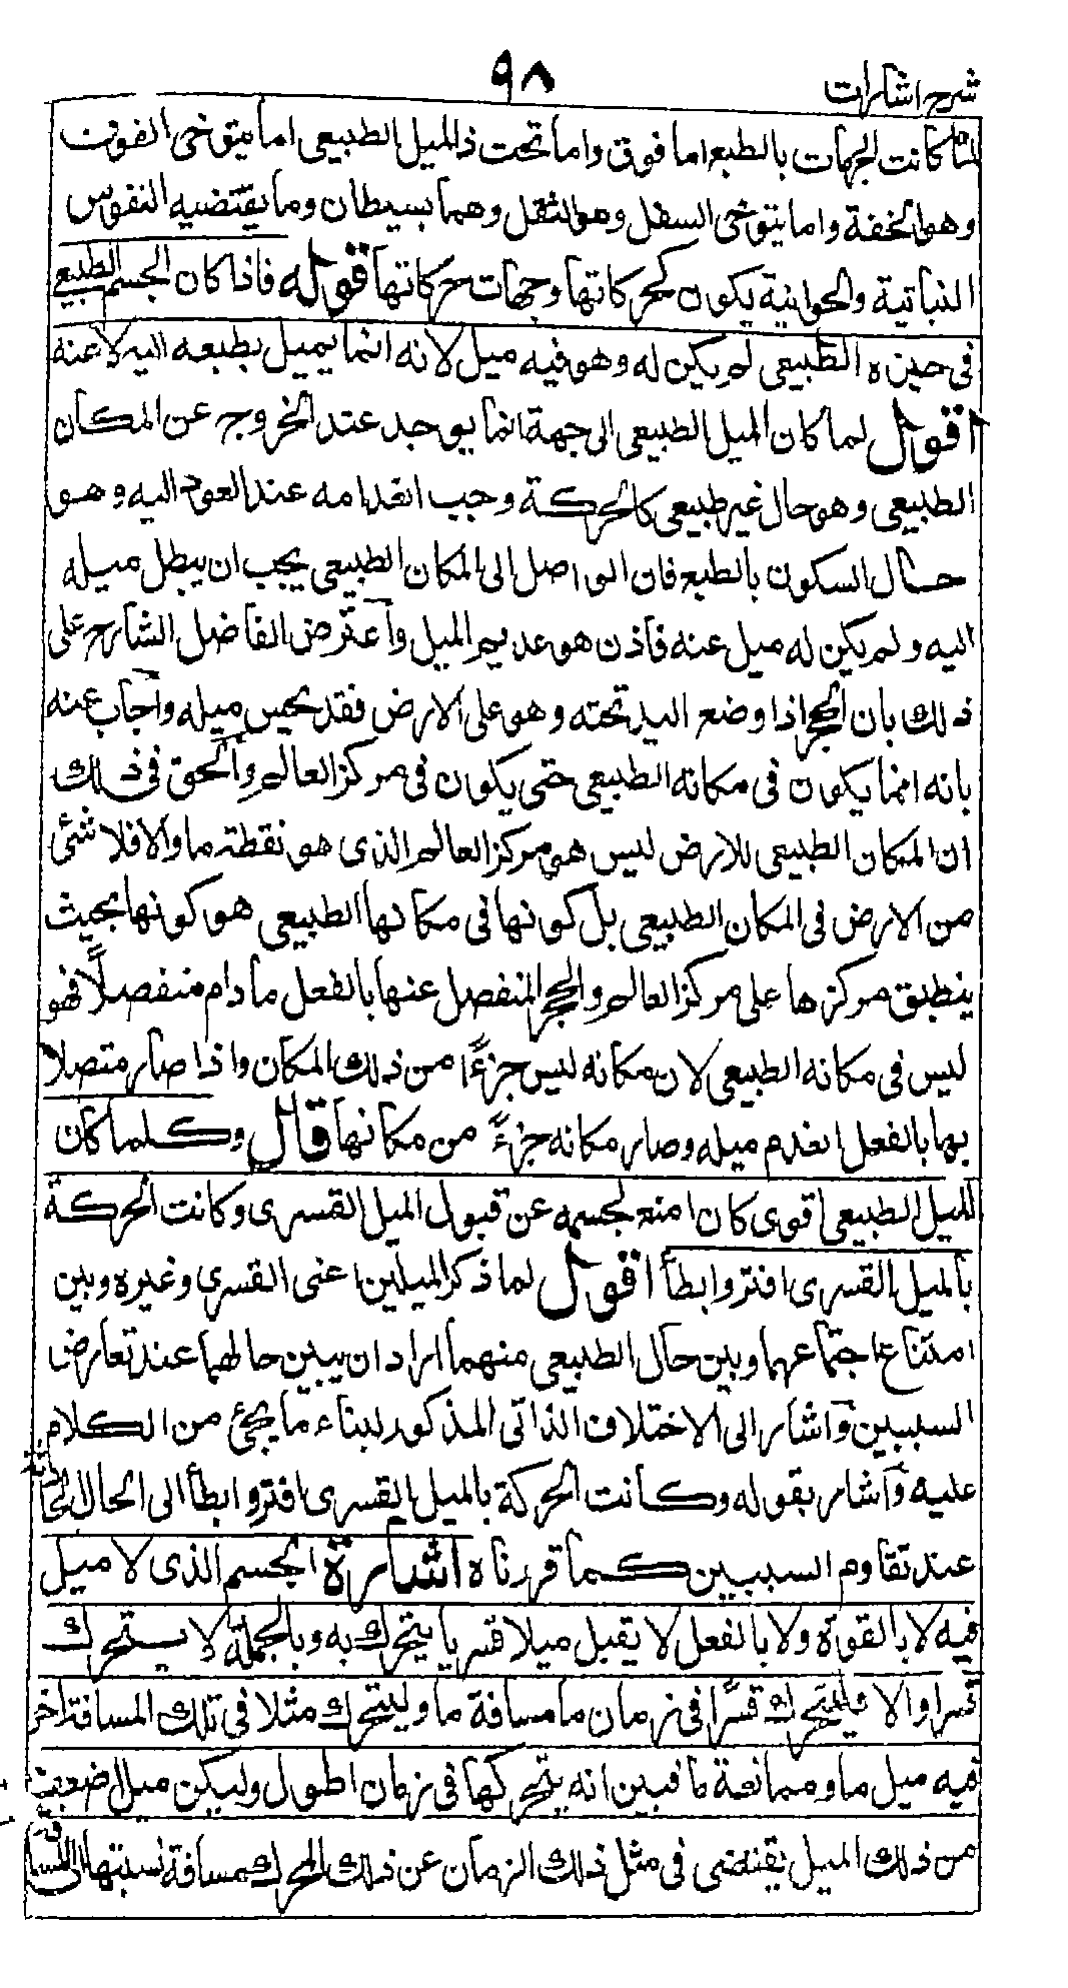 شرح اشارات
٩٨
لما كانت الجهات بالطبع اما فوق واما تحت فالميل الطبيعى اما يتوخى الفوق
وهو الخفة واما يتوخى السفل وهو الثقل وهما بسيطان وما يقتضيه النفوس
النباتية والحيوانية يكون كحركاتها وجهات حركاتها قوله فاذا كان الجسم الطبيعى
فى حيزه الطبيعى لم يكن له وهو فيه ميل لانه انما يميل بطبعه اليه لا عنه
اقول لما كان الميل الطبيعى الى جهة انما يوجد عند الخروج عن المكان
الطبيعى وهو حال غير طبيعى كالحركة وجب انعدامه عند العود اليه وهو
حال السكون بالطبع فان الواصل الى المكان الطبيعى يجب ان يبطل ميله
اليه ولم يكن له ميل عنه فاذن هو عديم الميل واعترض الفاضل الشارح على
ذلك بان الحجر اذا وضع اليد تحته وهو على الارض فقد يحس ميله واجاب عنه
بانه انما يكون فى مكانه الطبيعى حتى يكون فى مركز العالم والحق فى ذلك
ان المكان الطبيعى للارض ليس هو مركز العالم الذى هو نقطة ما والا فلا شئ
من الارض فى المكان الطبيعى بل كونها فى مكانها الطبيعى هو كونها بحيث
ينطبق مركزها على مركز العالم والحجر المنفصل عنها بالفعل ما دام منفصلاً فهو
ليس فى مكانه الطبيعى لان مكانه ليس جزءًا من ذلك المكان واذا صار متصلا
بها بالفعل انعدم ميله وصار مكانه جزءً من مكانها قال وكلما كان
الميل الطبيعى اقوى كان امنع لجسمه عن قبول الميل القسرى وكانت الحركة
بالميل القسرى افتر وابطأ اقول لما ذكر الميلين اعنى القسرى وغيره وبين
امتناع اجتماعهما وبين حال الطبيعى منهما اراد ان يبين حالهما عند تعارض
السببين واشار الى الاختلاف الذاتى المذكور لبناء ما يجئ من الكلام
عليه واشار بقوله وكانت الحركة بالميل القسرى افتر وابطأ الى الحال
عند تقاوم السببين كما قررناه اشارة الجسم الذى لا ميل
فيه لا بالقوة ولا بالفعل لا يقبل ميلا قسريا يتحرك به وبالجملة لا يتحرك
قسرا والا فليتحرك قسرًا فى زمان ما مسافة ما وليتحرك مثلا فى تلك المسافة اخر
فيه ميل ما وممانعة ما فبين انه يتحركها فى زمان اطول وليكن ميل اضعف
من ذلك الميل يقتضى فى مثل ذلك الزمان عن ذلك المحرك مسافة نسبتها الى المسافة